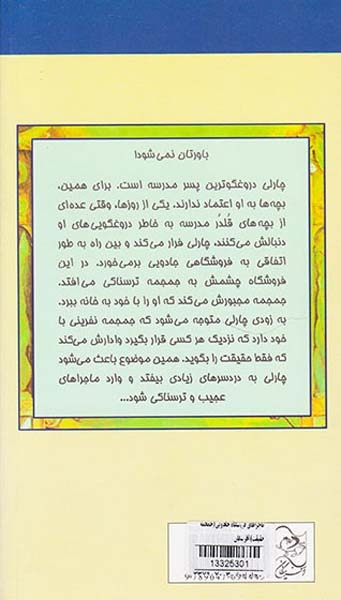 باورتان نمی‌شود!
چارلی دروغگوترین پسر مدرسه است. برای همین،
بچه‌ها به او اعتماد ندارند. یکی از روزها، وقتی عده‌ای
از بچه‌های قُلدُر مدرسه به خاطر دروغگویی‌های او
دنبالش می‌کنند، چارلی فرار می‌کند و بین راه به طور
اتفاقی به فروشگاهی جادویی برمی‌خورد. در این
فروشگاه چشمش به جمجمه ترسناکی می‌افتد.
جمجمه مجبورش می‌کند که او را با خود به خانه ببرد.
به زودی چارلی متوجه می‌شود که جمجمه نفرینی با
خود دارد که نزدیک هر کسی قرار بگیرد وادارش می‌کند
که فقط حقیقت را بگوید. همین موضوع باعث می‌شود
چارلی به دردسرهای زیادی بیفتد و وارد ماجراهای
عجیب و ترسناکی شود...
13325301